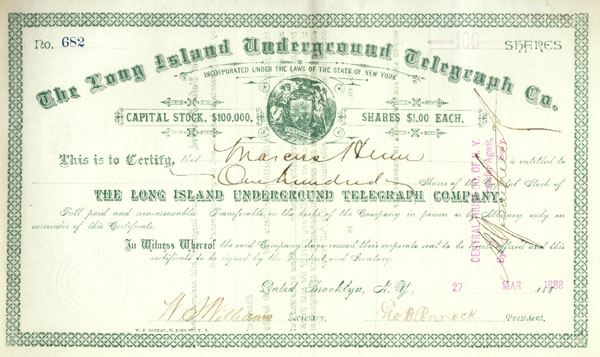 No. 682
100 SHARES
The Long Island Underground Telegraph Co.
INCORPORATED UNDER THE LAWS OF THE STATE OF NEW YORK
CAPITAL STOCK, $100,000. SHARES $1.00 EACH.
This is to Certify, that Marcus is entitled to
One hundred Shares of the Capital Stock of
THE LONG ISLAND UNDERGROUND TELEGRAPH COMPANY.
Full paid and non-assessable Transferable on the books of the Company in person or by Attorney, only on
surrender of this Certificate.
In Witness Whereof the said Company have caused their corporate seal to be affixed and this
certificate to be signed by the President and Secretary.
Dated Brooklyn, N.Y. 27 MAR 1888
W S Williams Secretary. Geo President.
CENTRAL TRUST CO. OF N.Y.